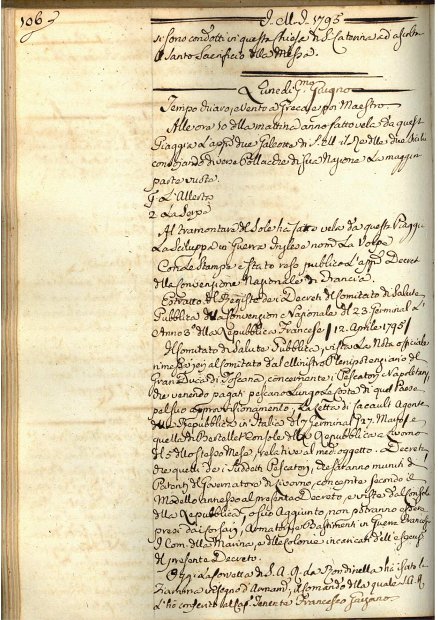 106
J. M. J. 1795
si sono condotti in questa Chiesa di S. Caterina ad ascoltar
il Santo Sacrificio della Messa.
Lunedì P.mo Giugno
Tempo chiaro, e Vento a Grecale poi Maestro.
Alle ore 10 della mattina anno fatto vela da questa
Spiaggia L'app. due Galeotte di S. M. il Re delle due Sicilie
convojando diverse Pollacche di sua Nazione La maggior
parte vuote.
L'Allerta
2 La Serpe
Al tramontare del Sole ha fatto vela da questa Spiaggia
La Sciluppa di Guerra Inglese nom. La Volpe
Con le Stampe è stato reso pubblico L'app. Decreto
della Convenzione Nazionale di Francia.
Estratto del Registro dei Decreti del Comitato di Salute
Pubblica della Convenzione Nazionale del 23 Germinal L'
Anno 3.º della Repubblica Francese / 12. Aprile 1795 /
Il Comitato di Salute Pubblica, vista La Nota officiale
rimessa jeri al Comitato dal Ministro Plenipotenziario del
Gran Duca di Toscana, concernente i Pescatori Napoletani,
che venendo pagati pescano Lungo Le Coste di quel Paese
pel suo approvisionamento; La Lettera di Cacault Agente
della Repubblica in Italia del 7 Germinal /27. Marzo/ e
quella di Console della Repubblica a Livorno
del dello stesso Mese, relative al med. oggetto. Decreta
che quelli dei suddetti Pescatori, che saranno muniti di
Patenti del Governatore di Livorno, concepite secondo il
Modello annesso al presente Decreto, e viste dal Console
della Repubblica, o suo Aggiunto, non potranno essere
presi dai Corsari, Armatori, e Bastimenti in Guerra Francesi
I Com. della Marina, e delle Colonie incaricati dell'esecuz.
del presente Decreto.
Oggi La Corvetta di S. A. R. La Rondinella ha
Fiamma in segno d'Armam. il Comando della quale S. A. R.
L'ha conferito al Cap. Tenente Francesco